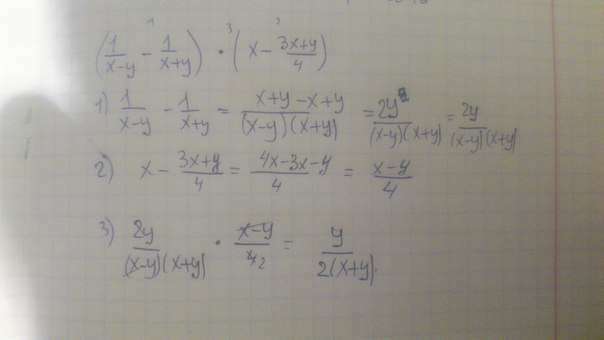 (1/(x-y) - 1/(x+y)) · (x - (3x+y)/4)
1) 1/(x-y) - 1/(x+y) = (x+y-x+y)/((x-y)(x+y)) = 2y/((x-y)(x+y)) = 2y/((x-y)(x+y))
2) x - (3x+y)/4 = (4x-3x-y)/4 = (x-y)/4
3) 2y/((x-y)(x+y)) · (x-y)/4 2 = y/(2(x+y)).